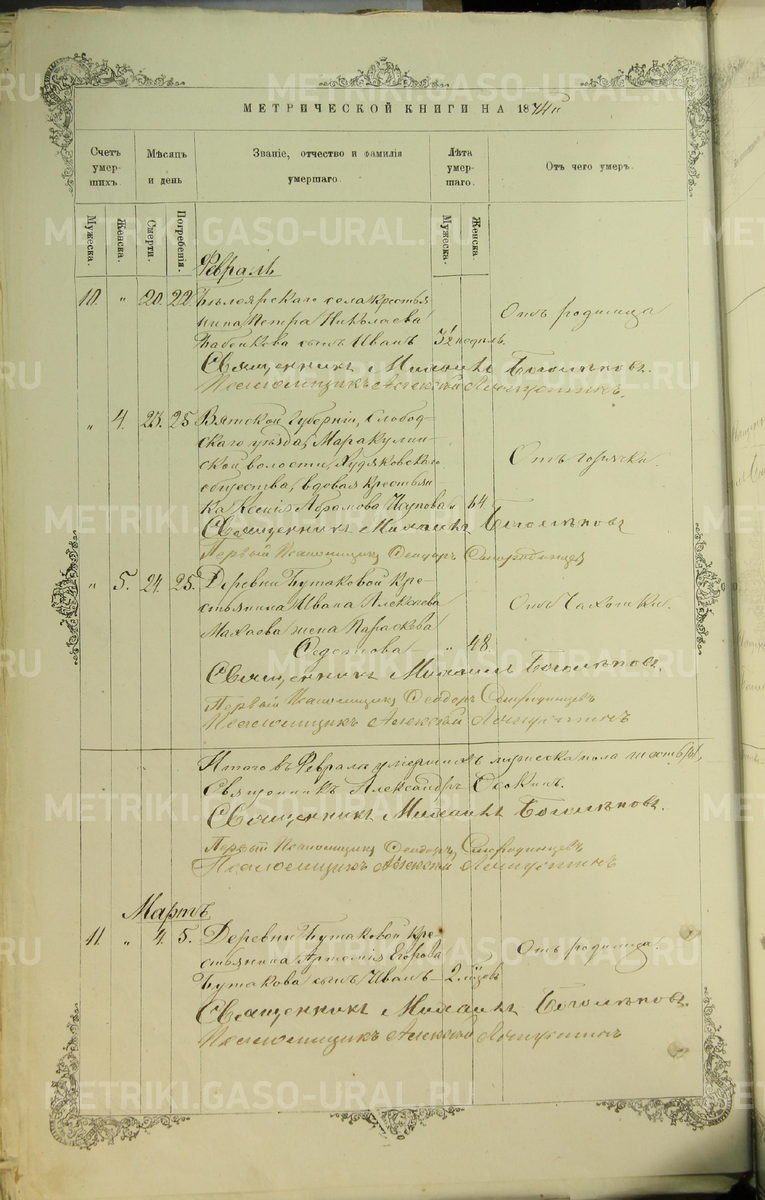 МЕТРИЧЕСКОЙ КНИГИ НА 1874й
Счетъ умер- шихъ.
Мѣсяцъ и день
Званіе, отчество и фамилія умершаго.
Лѣта умер- шаго.
Отъ чего умеръ.
Мужеска.
Женска.
Смерти.
Погребенія.
Мужеска.
Женска.
Февраль
10. " 20. 22. Бѣлоярскаго села крестья-
нина Петра Николаева
сынъ Иванъ 3½ недѣль. Отъ родимца
Священникъ Михаилъ Боголѣповъ.
Псаломщикъ Алексѣй
" 4. 23. 25. Вятской губерніи, Слобод-
скаго уѣзда, Маракулин-
ской волости, Худяковскаго
общества, вдовая крестьян-
ка Ксенія Абрамова " 64 Отъ горячки.
Священникъ Михаилъ Боголѣповъ
Первый Псаломщикъ Ѳеодоръ Смородинцевъ
" 5. 24. 25. Деревни Бутаковой кре-
стьянина Ивана Алексѣева
Махаева жена Параскева
Ѳедотова " 48. Отъ чахотки.
Священникъ Михаилъ Боголѣповъ.
Первый Псаломщикъ Ѳеодоръ Смородинцевъ
Псаломщикъ Алексѣй
Итого въ Февралѣ умершихъ мужеска пола шесть (6),
Священникъ Александръ
Священникъ Михаилъ Боголѣповъ.
Первый Псаломщикъ Ѳеодоръ Смородинцевъ
Псаломщикъ Алексѣй
Мартъ
11. " 4. 5. Деревни Бутаковой кре-
стьянина Артемія Егорова
Бутакова сынъ Иванъ 2. годовъ Отъ родимца.
Священникъ Михаилъ Боголѣповъ.
Псаломщикъ Алексѣй
METRIKI.GASO-URAL.RU